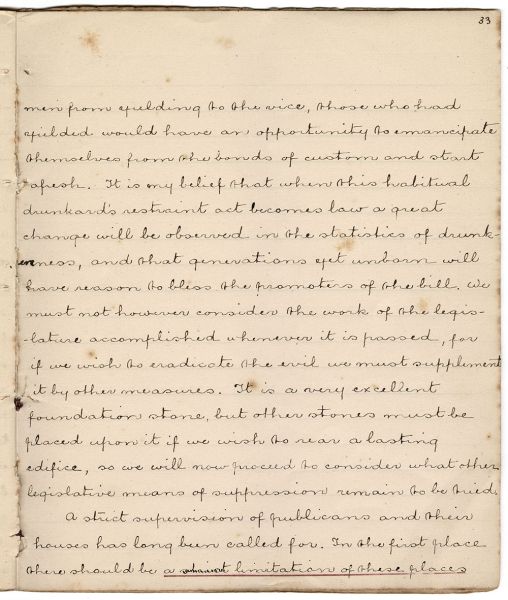 33
men from yielding to the vice, those who had
yielded would have an opportunity to emancipate
themselves from the bonds of custom and start
afresh. It is my belief that when this habitual
drunkard's restraint act becomes law a great
change will be observed in the statistics of drunk-
enness, and that generations yet unborn will
have reason to bless the promoters of the bill. We
must not however consider the work of the legis-
-lature accomplished whenever it is passed, for
if we wish to eradicate the evil we must supplement
it by other measures. It is a very excellent
foundation stone, but other stones must be
placed upon it if we wish to rear a lasting
edifice, so we will now proceed to consider what other
legislative means of suppression remain to be tried.
A strict supervision of publicans and their
houses has long been called for. In the first place
there should be a limitation of these places